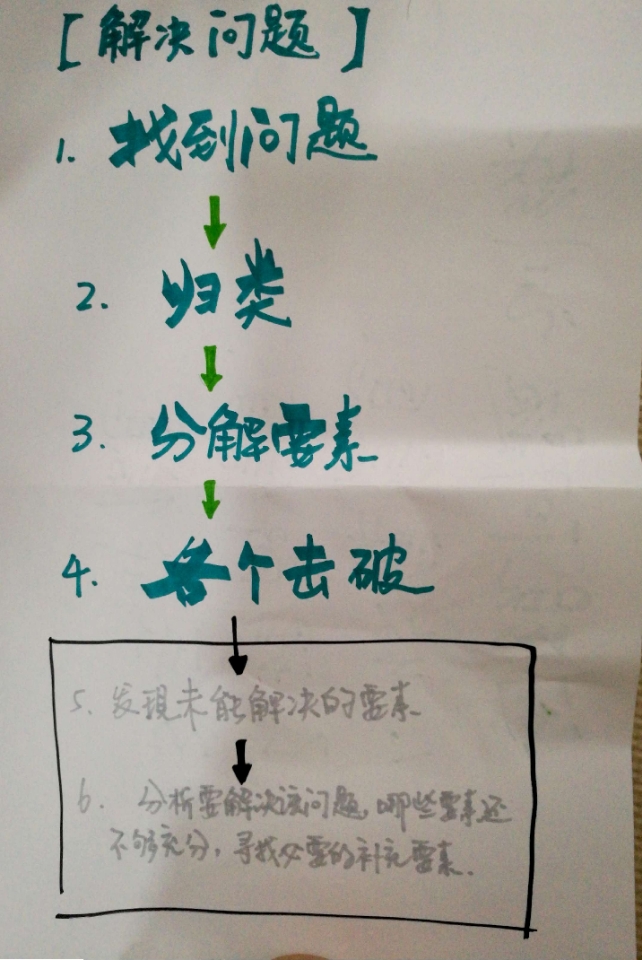 [解决问题]
1. 找到问题
2. 归类
3. 分解要素
4. 各个击破
5. 发现未能解决的要素
6. 分析要解决该问题,哪些要素还
不够充分,寻找必要的补充要素.